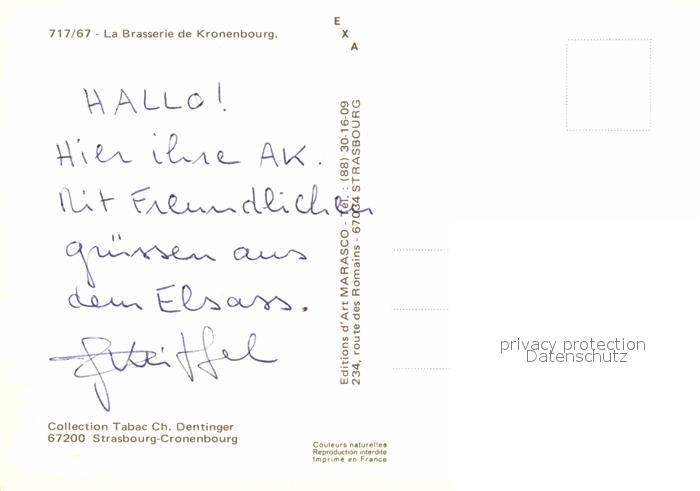 717/67 - La Brasserie de Kronenbourg.
E
X
A
HALLO!
Hier ihre AK.
Mit Freundlichen
grüssen aus
dem Elsass.
Editions d'Art MARASCO - Tél. : (88) 30-16-09
234, route des Romains - 67034 STRASBOURG
privacy protection
Datenschutz
Collection Tabac Ch. Dentinger
67200 Strasbourg-Cronenbourg
Couleurs naturelles
Reproduction interdite
Imprimé en France